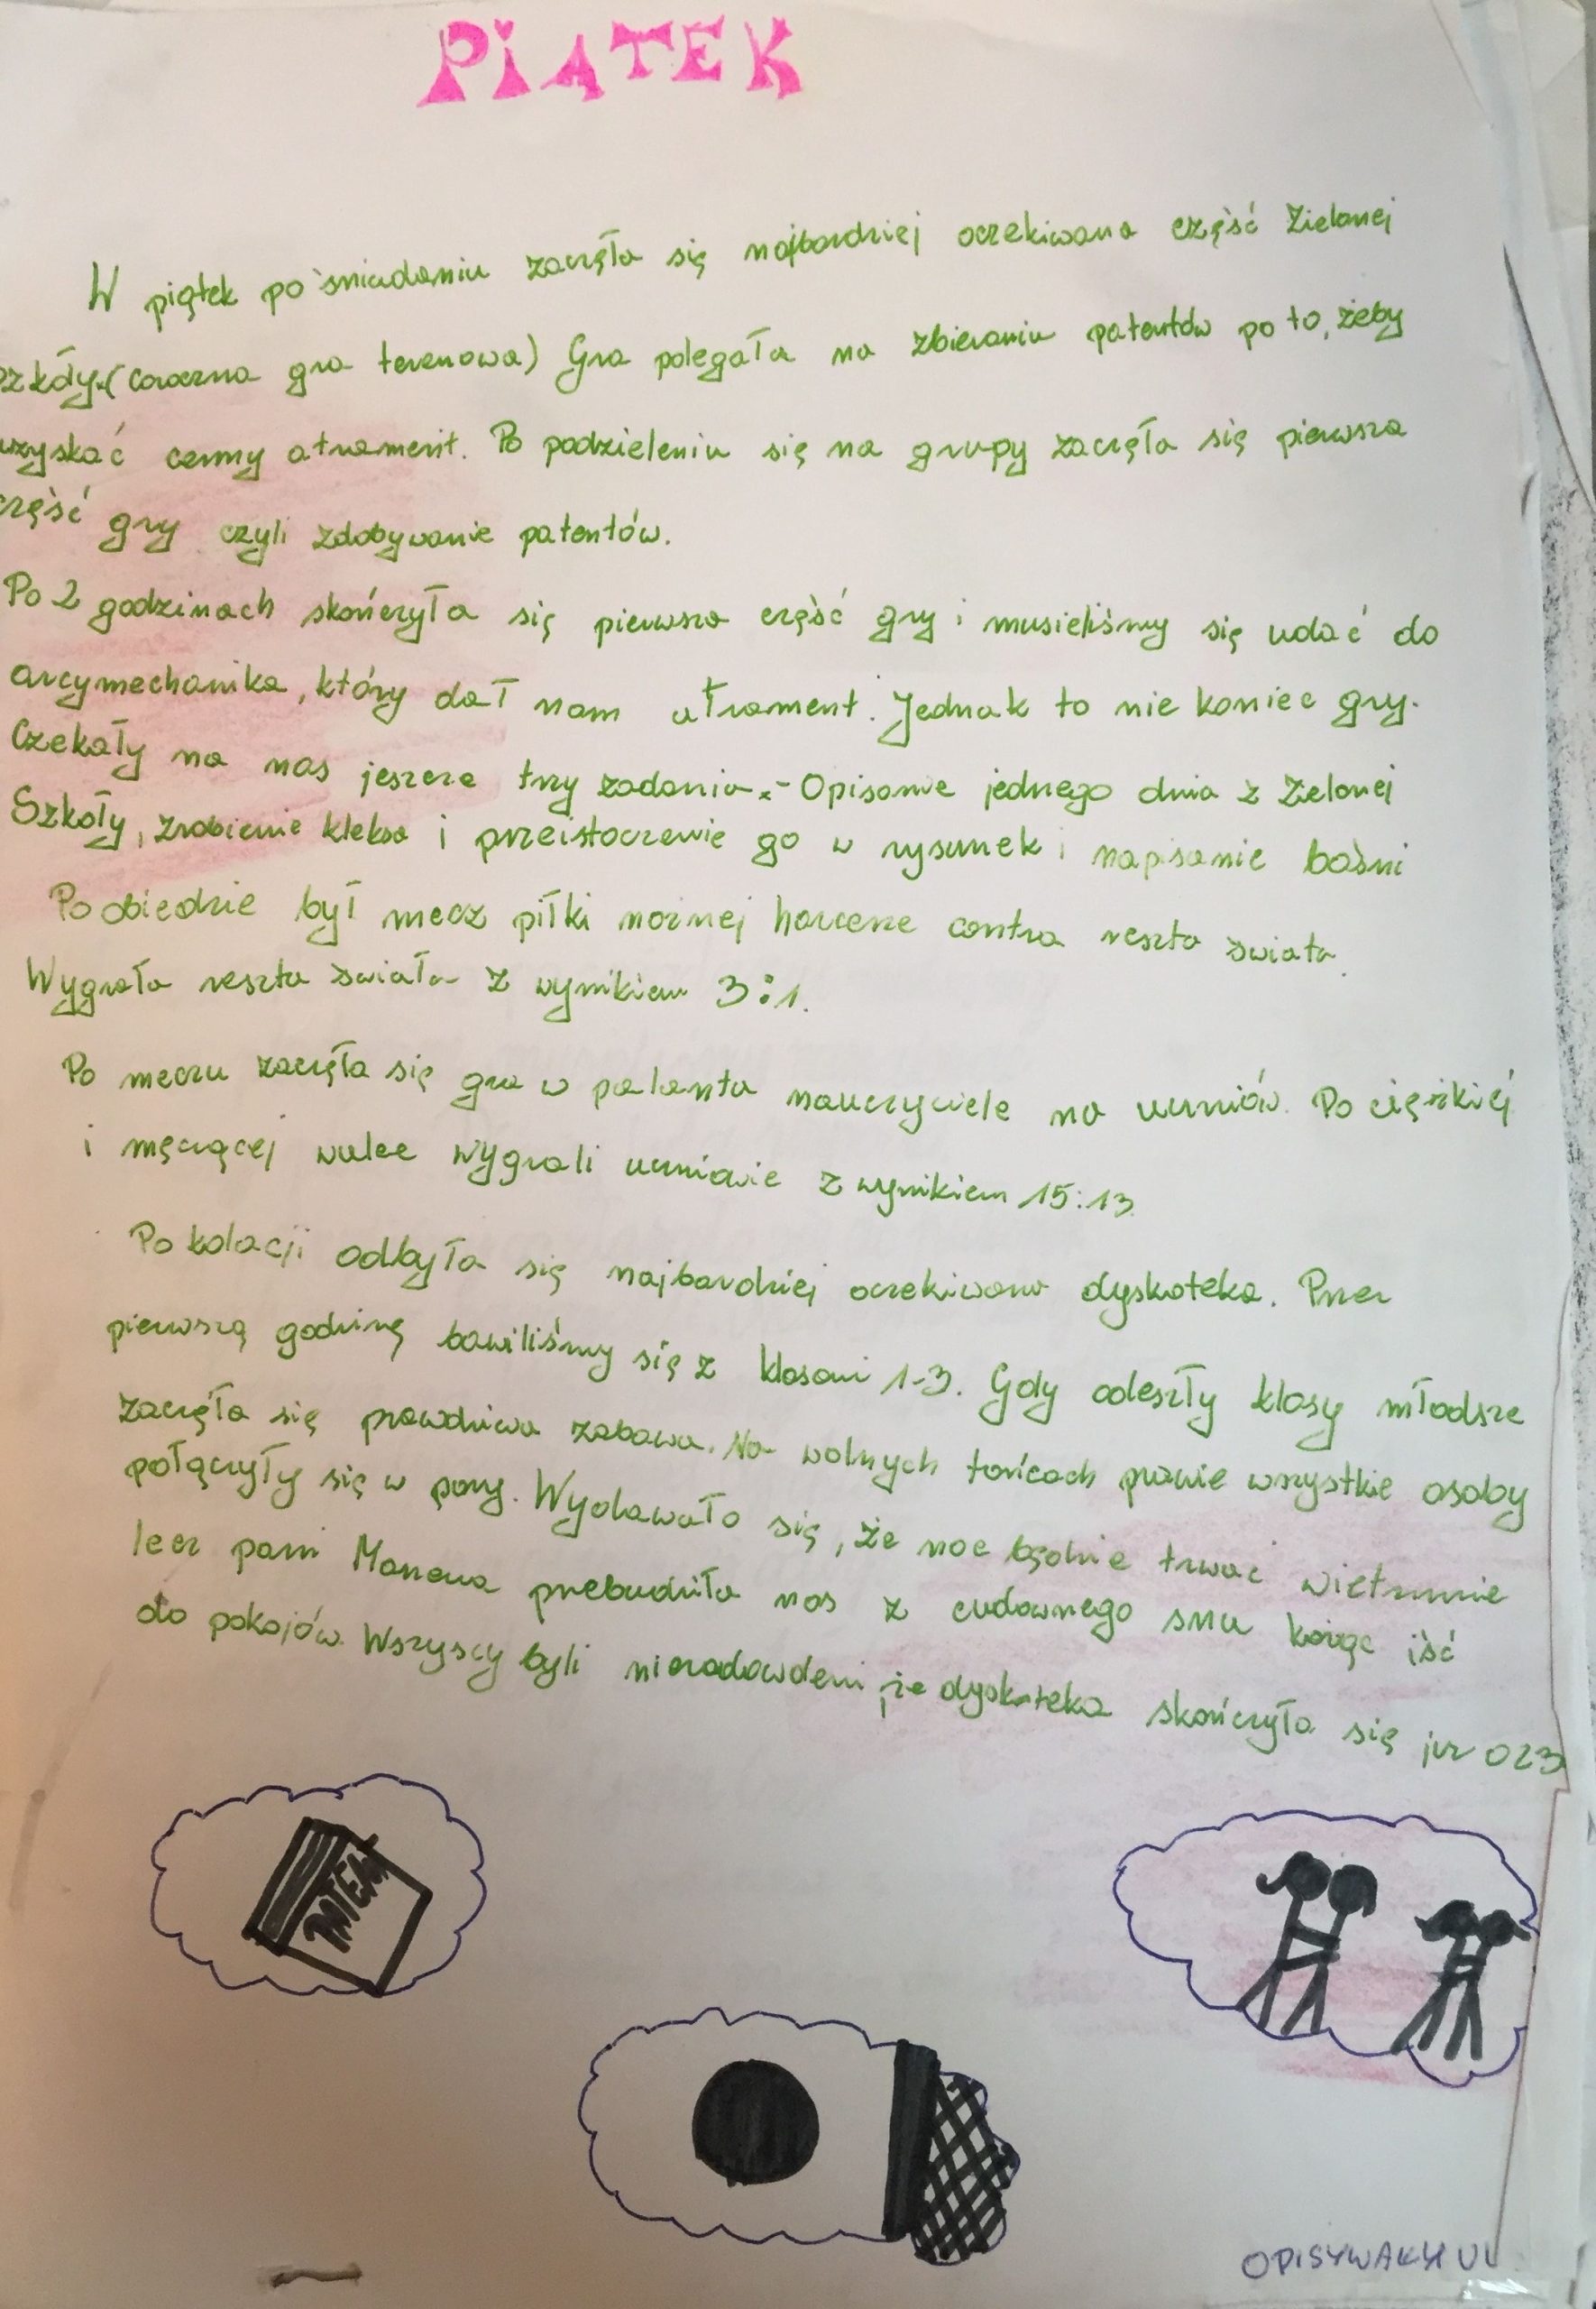 PIĄTEK
W piątek po śniadaniu zaczęła się najbardziej oczekiwana część Zielonej
szkoły (coroczna gra terenowa) Gra polegała na zbieraniu patentów po to, żeby
uzyskać czarny atrament. Po podzieleniu się na grupy zaczęła się pierwsza
część gry czyli zdobywanie patentów.
Po 2 godzinach skończyła się pierwsza część gry i musieliśmy się udać do
arcymechanika, który dał nam atrament. Jednak to nie koniec gry.
Czekały na nas jeszcze trzy zadania: - Opisanie jednego dnia z Zielonej
Szkoły, zrobienie kleksa i przeistoczenie go w rysunek i napisanie baśni
Po obiedzie był mecz piłki nożnej harcerze contra reszta świata.
Wygrała reszta świata z wynikiem 3:1.
Po meczu zaczęła się gra w palanta nauczyciele na uczniów. Po ciężkiej
i męczącej walce wygrali uczniowie z wynikiem 15:13
Po kolacji odbyła się najbardziej oczekiwana dyskoteka. Przez
pierwszą godzinę bawiliśmy się z klasami 1-3. Gdy odeszły klasy młodsze
zaczęła się prawdziwa zabawa. Na wolnych tańcach prawie wszystkie osoby
połączyły się w pary. Wydawało się, że noc będzie trwać wiecznie
lecz pani przebudziła nas z cudownego snu każąc iść
do pokojów. Wszyscy byli niezadowoleni, że dyskoteka skończyła się już o 23
PATENT